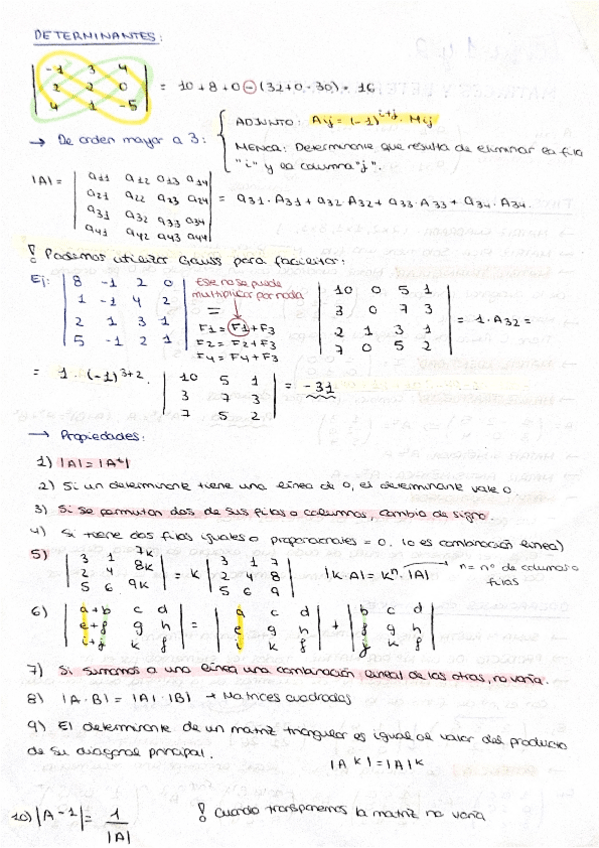 DETERMINANTES:
| -1 3 4 |
| 2 2 0 | = 10+8+0-(32+0-30) = 16
| 4 1 -5 |
→ De orden mayor a 3: { ADJUNTO: Aij = (-1)^(i+j) · Mij
MENOR: Determinante que resulta de eliminar la fila
"i" y la columna "j".
|A| = | a11 a12 a13 a14 |
| a21 a22 a23 a24 | = a31·A31 + a32·A32 + a33·A33 + a34·A34.
| a31 a32 a33 a34 |
| a41 a42 a43 a44 |
! Podemos utilizar Gauss para facilitar:
Ej: | 8 -1 2 0 | Ese no se puede | 10 0 5 1 |
| 1 -1 4 2 | multiplicar por nada | 3 0 7 3 |
| 2 1 3 1 | = | 2 1 3 1 | = 1·A32 =
| 5 -1 2 1 | | 7 0 5 2 |
F1 = F1+F3
F2 = F2+F3
F4 = F4+F3
= 1·(-1)^(3+2) · | 10 5 1 |
| 3 7 3 | = -31
| 7 5 2 |
→ Propiedades:
1) |A| = |A^t|
2) Si un determinante tiene una línea de 0, el determinante vale 0.
3) Si se permutan dos de sus filas o columnas, cambia de signo
4) Si tiene dos filas iguales o proporcionales = 0. (o es combinación lineal)
5) | 3 1 7k | | 3 1 7 |
| 2 4 8k | = k | 2 4 8 | |k·A| = k^n · |A| → n = nº de columnas o filas
| 5 6 9k | | 5 6 9 |
6) | a+b c d | | a c d | | b c d |
| e+f g h | = | e g h | + | f g h |
| i+j k l | | i k l | | j k l |
7) Si sumamos a una línea una combinación lineal de las otras, no varía.
8) |A·B| = |A|·|B| → Matrices cuadradas
9) El determinante de un matriz triangular es igual al valor del producto
de su diagonal principal. |A^k| = |A|^k
10) |A-1| = 1/|A| ! Cuando transponemos la matriz no varía